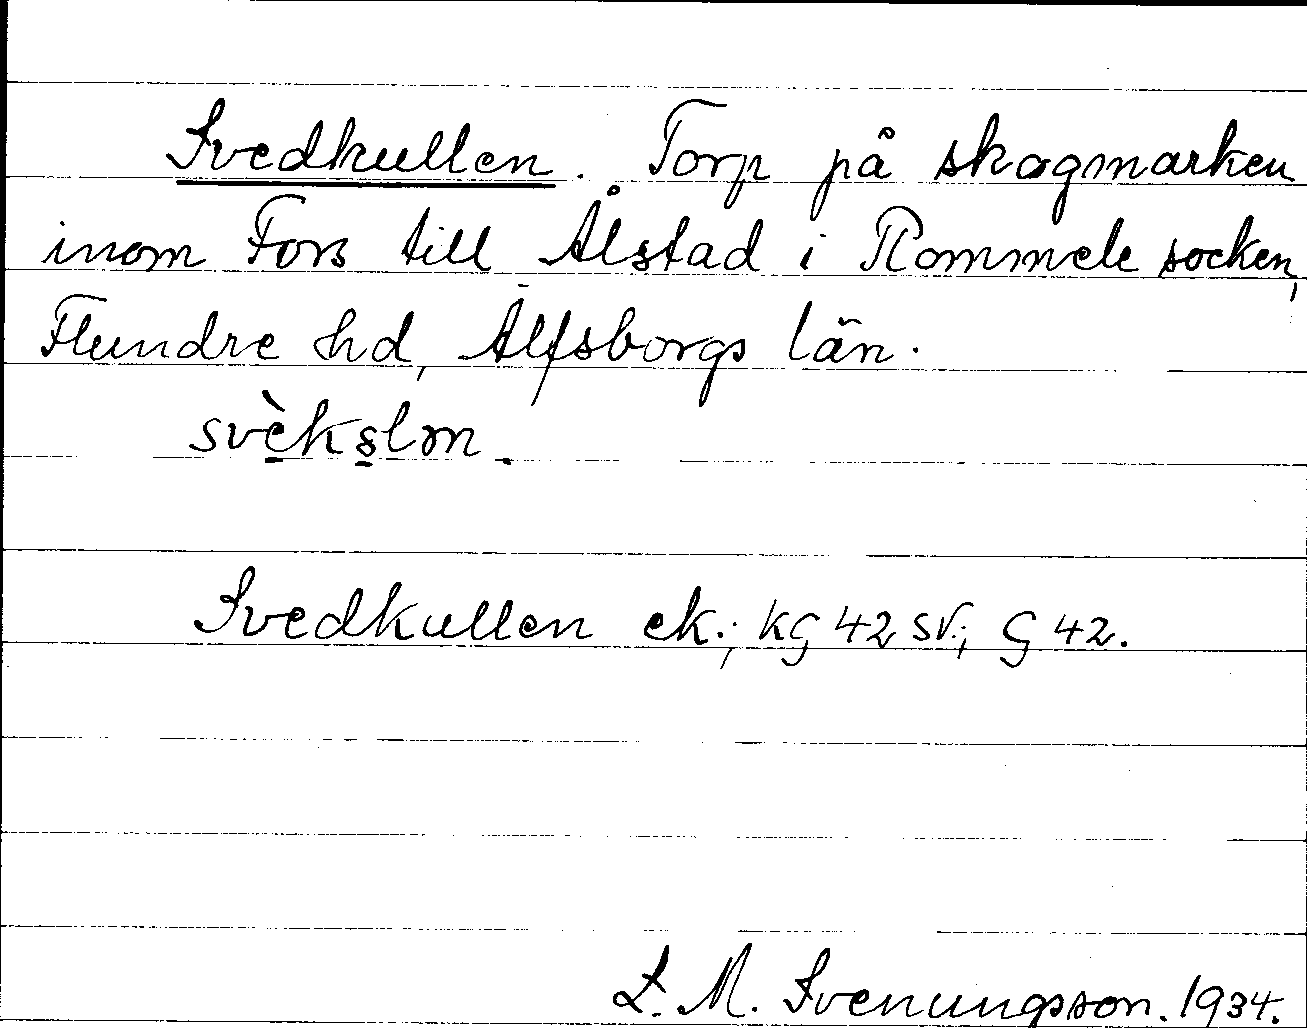 Svedkullen. Torp på skogmarken
inom Fors till Ålstad i Rommele socken,
Flundre hd, Älfsborgs län.
svèkslm.
Svedkullen ek.; KG 42 SV.; G 42.
L. M. Svenungsson. 1934.